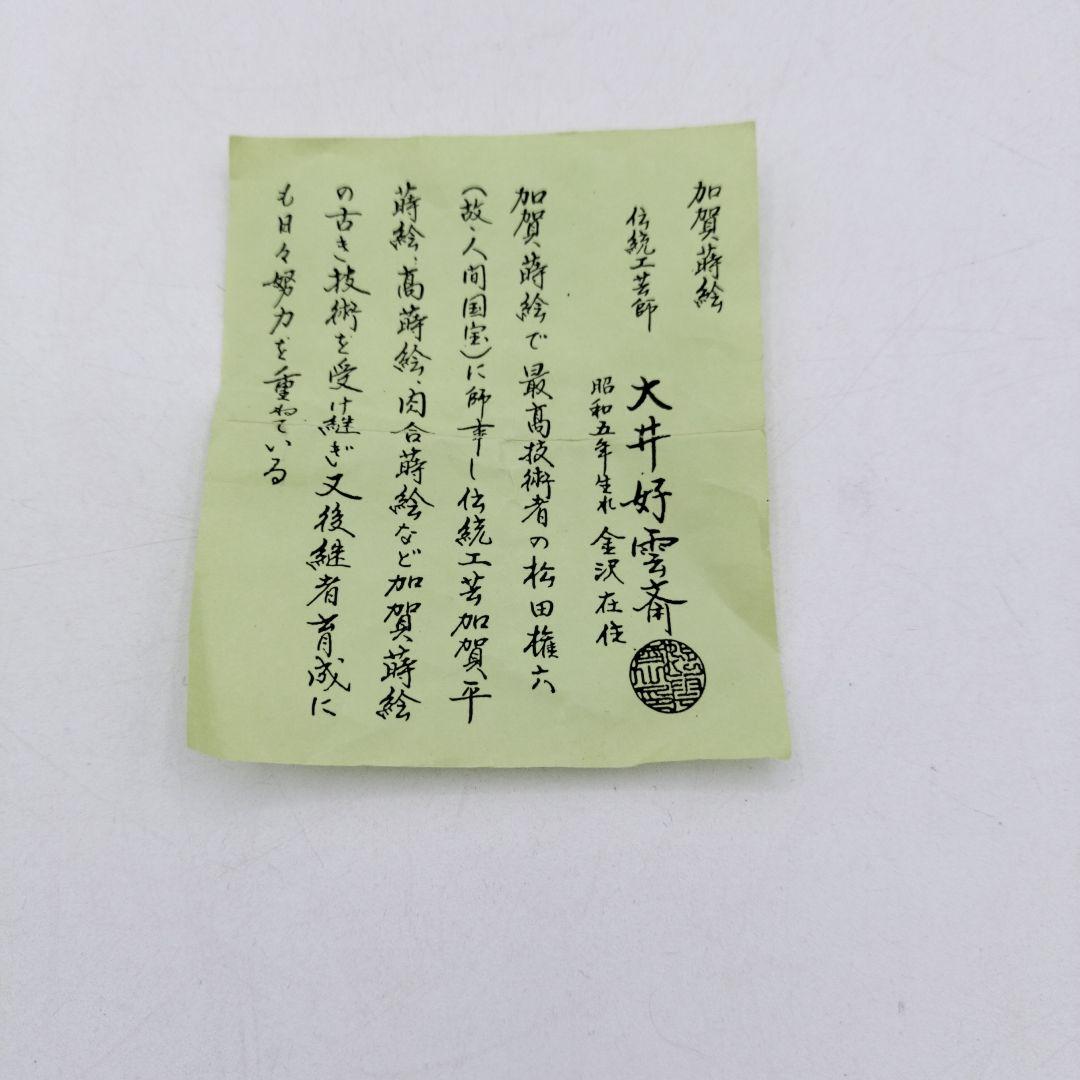 加賀蒔絵
伝統工芸師
大井好雲斎
昭和五年生れ 金沢在住
加賀蒔絵で最高技術者の松田権六
(故・人間国宝)に師事し伝統工芸加賀平
蒔絵、高蒔絵、肉合蒔絵など加賀蒔絵
の古き技術を受け継ぎ又後継者育成に
も日々努力を重ねている